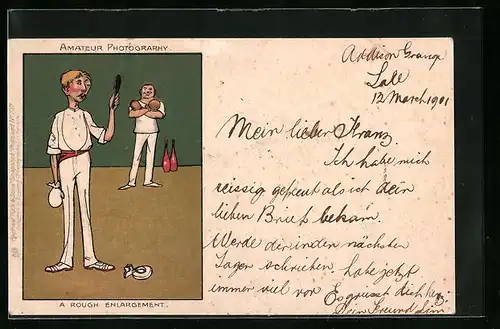 AMATEUR PHOTOGRAPHY.
A ROUGH ENLARGEMENT.
Addison Grange
Sale
12 March 1901
Mein lieber Franz.
Ich habe mich
reissig gefreut als ich dein
lieben Brief bekam.
Werde dir in den nächsten
Tagen schrieben, habe jetzt
immer viel vor Es grusst dich herz.
Dein Freund Lim